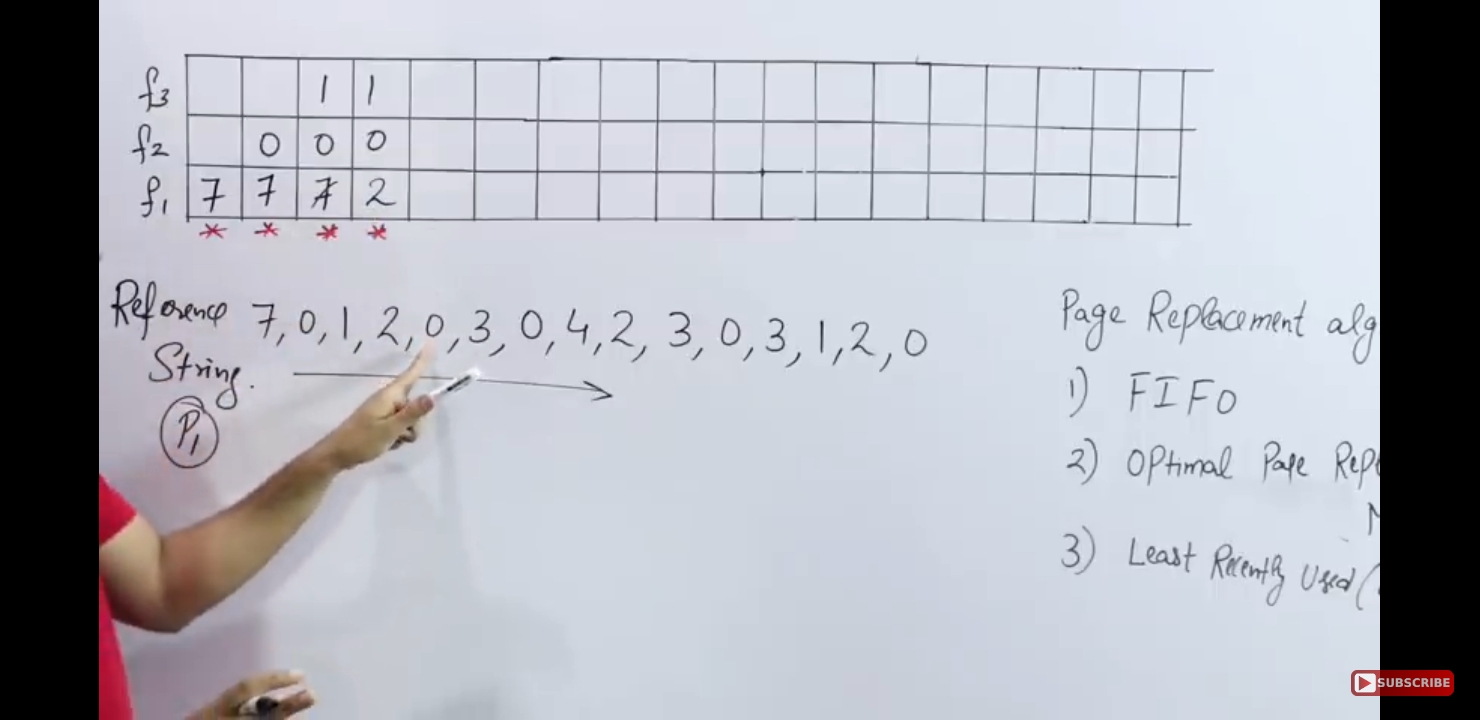 f3 1 1
f2 0 0 0
f1 7 7 7 2
* * * *
Reference 7, 0, 1, 2, 0, 3, 0, 4, 2, 3, 0, 3, 1, 2, 0
String.
P1
Page Replacement alg
1) FIFO
2) Optimal Page Rep
3) Least Recently Used (
SUBSCRIBE